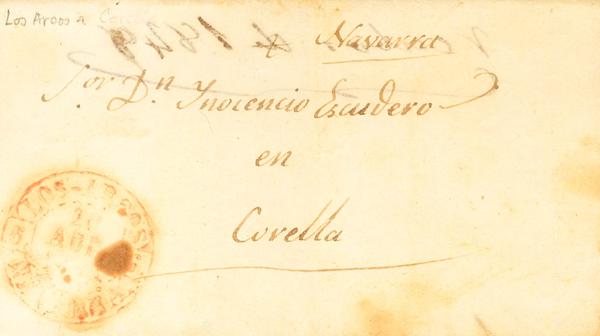 Los Arcos a Corella
1849
Navarra
Sor. Dn. Inocencio Escudero
en
Corella
LOS-ARCOS